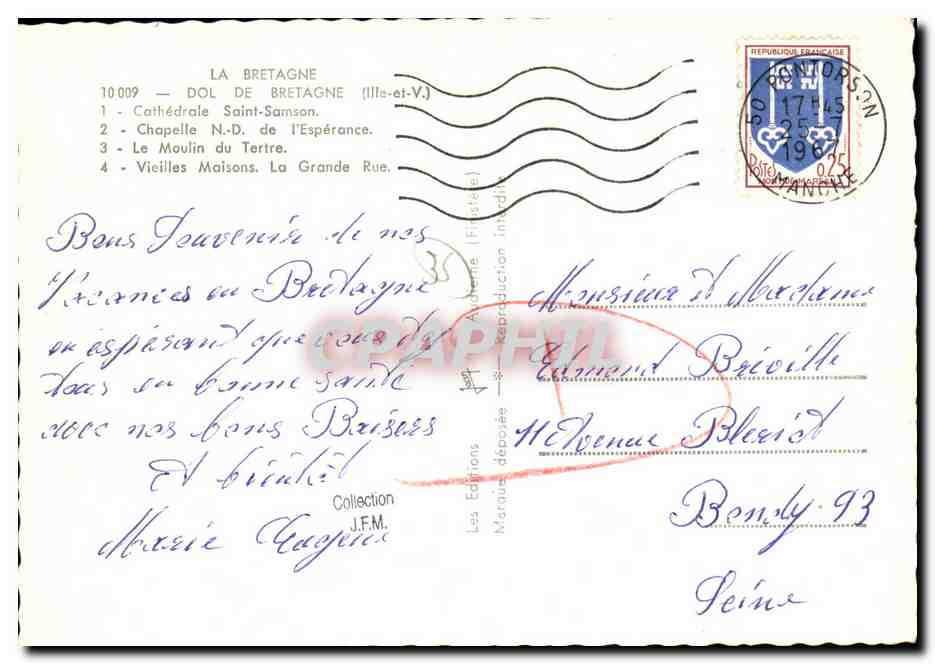 LA BRETAGNE
10 009 — DOL DE BRETAGNE (Ille-et-V.)
1 - Cathédrale Saint-Samson.
2 - Chapelle N.-D. de l'Espérance.
3 - Le Moulin du Tertre.
4 - Vieilles Maisons. La Grande Rue.
REPUBLIQUE FRANÇAISE
POSTES
0,25
MONT-DE-MARSAN
50 PONTORSON
17 H 45
25-7
1967
MANCHE
Bons Souvenir de nos
Vacances en Bretagne
en espérant que vous
tous en bonne santé
avec nos bons Baisers
A bientôt
Marie Eugène
Collection
J.F.M.
Les Editions Jos Audierne (Finistère)
Marque déposée — Reproduction interdite
CPAPHIL
Monsieur et Madame
Edmond Bréville
11 Avenue Bleriot
Bondy. 93
Seine